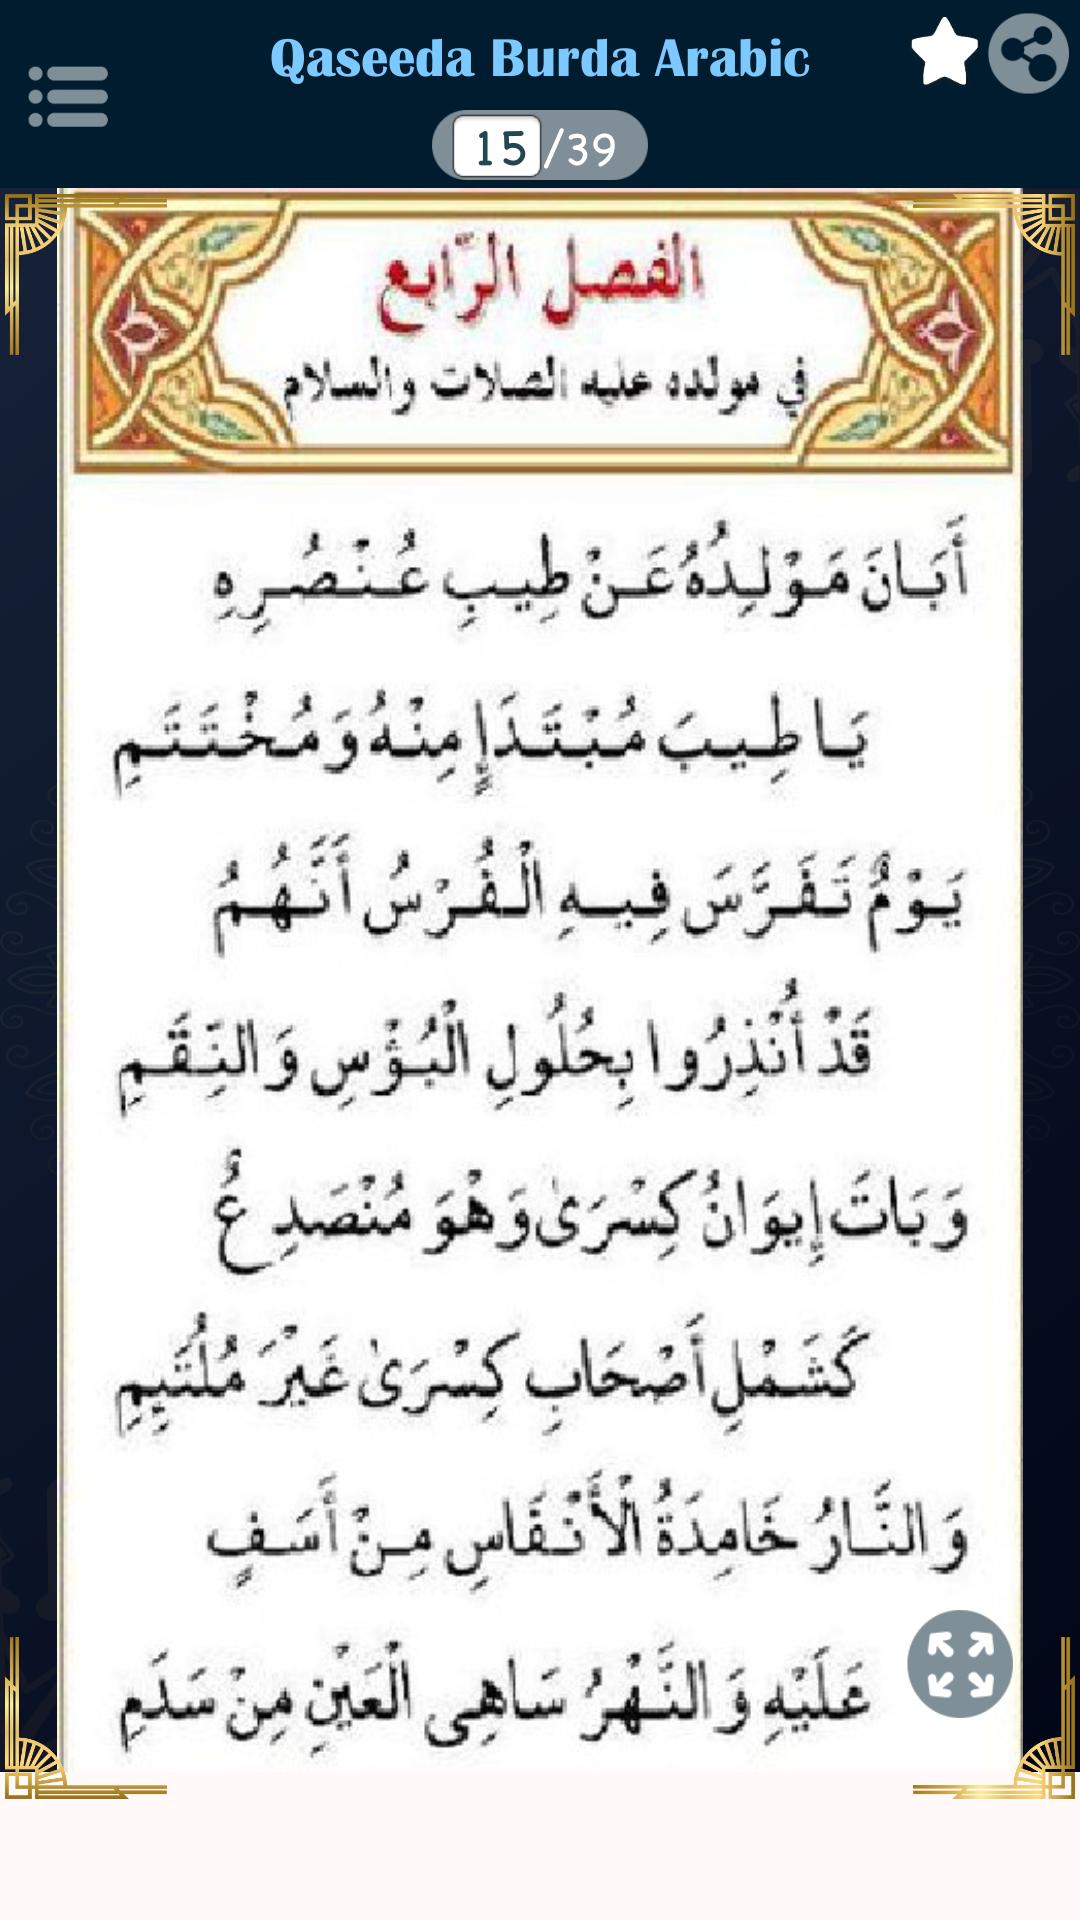 Qaseeda Burda Arabic
15/39
الفصل الرّابع
في مولده عليه الصلات والسلام
أَبَانَ مَوْلِدُهُ عَنْ طِيبِ عُنْصُرِهِ
يَا طِيبَ مُبْتَدَإٍ مِنْهُ وَمُخْتَتَمِ
يَوْمٌ تَفَرَّسَ فِيهِ الْفُرْسُ أَنَّهُمُ
قَدْ أُنْذِرُوا بِحُلُولِ الْبُؤْسِ وَالنِّقَمِ
وَبَاتَ إِيوَانُ كِسْرَىٰ وَهْوَ مُنْصَدِعُ
كَشَمْلِ أَصْحَابِ كِسْرَىٰ غَيْرَ مُلْتَئِمِ
وَالنَّارُ خَامِدَةُ الْأَنْفَاسِ مِنْ أَسَفٍ
عَلَيْهِ وَالنَّهْرُ سَاهِى الْعَيْنِ مِنْ سَدَمِ